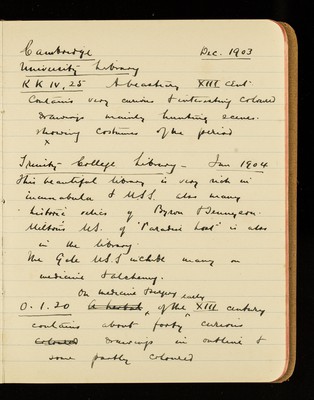 Cambridge Dec. 1903
University Library
KK IV, 25 A bestiary XIII cent.
Contains very curious & interesting coloured
drawings mainly hunting scenes.
showing costumes of the period
x
Trinity College Library - Jan 1904
This beautiful library is very rich in
incunabula & MSS also many
historic relics of Byron & Tennyson.
Milton's MS. of 'Paradise Lost' is also
in the library.
The Gale MSS include many on
medicine & alchemy.
On medicine & surgery early
O. 1. 20 A herbal of the XIII century
contains about forty curious
coloured drawings in outline &
some partly coloured